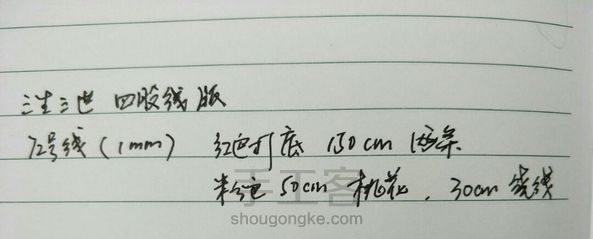 三生三世 四股线版
72号线(1mm) 红色打底 150cm 两条
粉色 50cm 桃花、30cm 绕线
手工客
shougongke.com